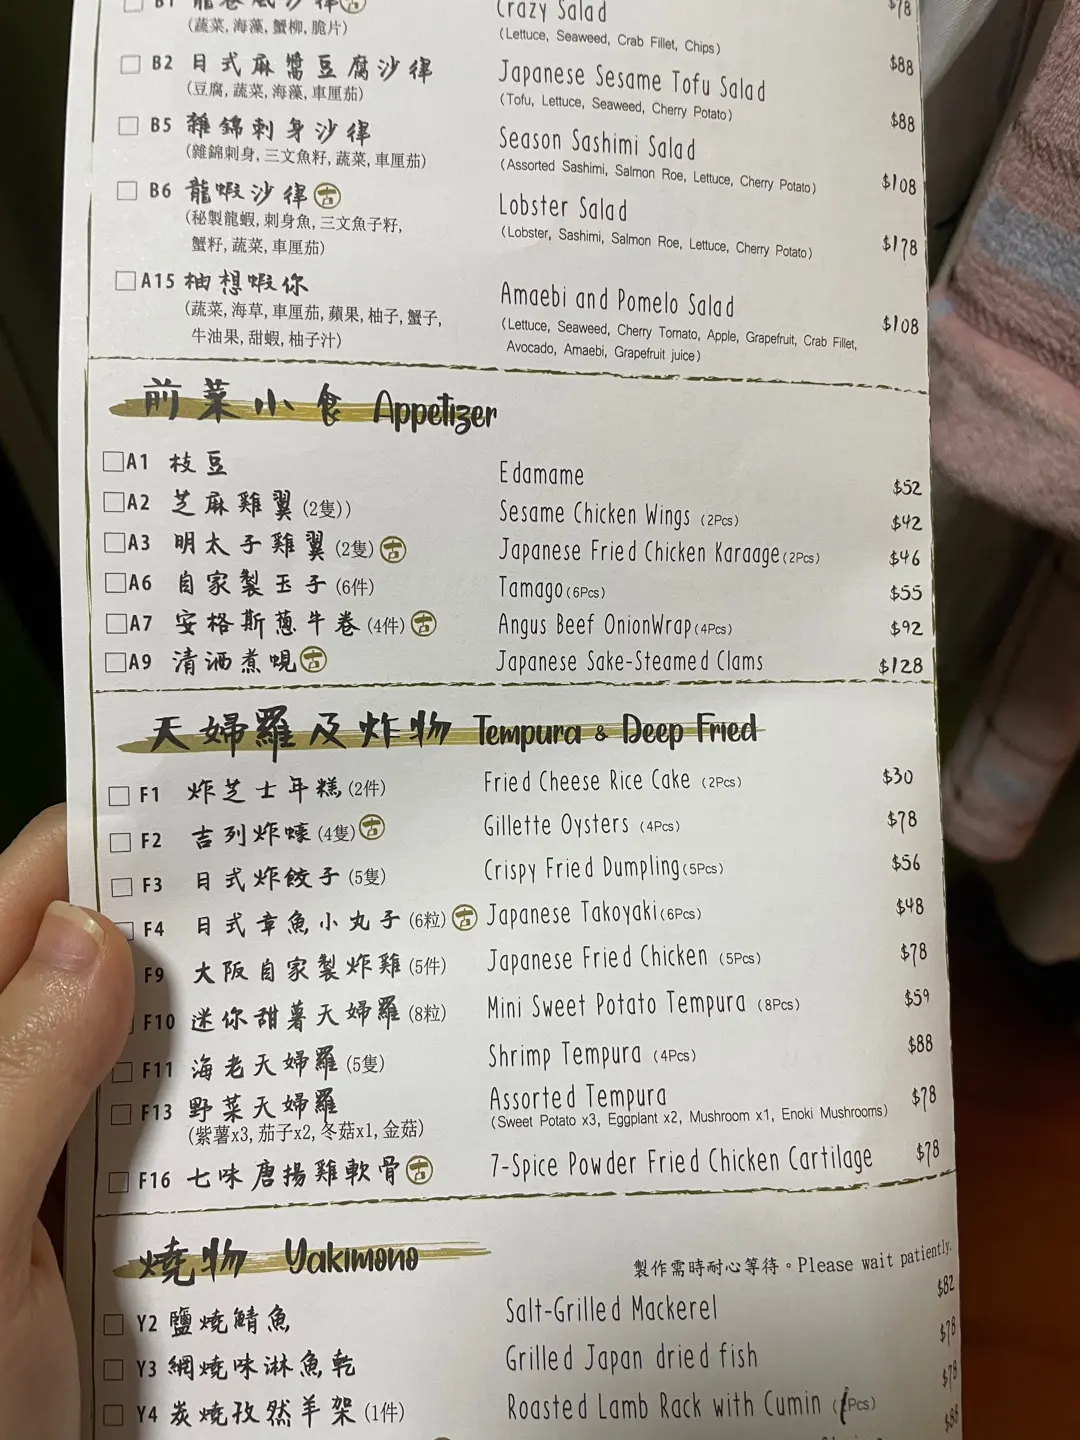 B1 龍卷風沙律 Crazy Salad $78
(蔬菜, 海藻, 蟹柳, 脆片) (Lettuce, Seaweed, Crab Fillet, Chips)
B2 日式麻醬豆腐沙律 Japanese Sesame Tofu Salad $88
(豆腐, 蔬菜, 海藻, 車厘茄) (Tofu, Lettuce, Seaweed, Cherry Potato)
B5 雜錦刺身沙律 Season Sashimi Salad $88
(雜錦刺身, 三文魚籽, 蔬菜, 車厘茄) (Assorted Sashimi, Salmon Roe, Lettuce, Cherry Potato) $108
B6 龍蝦沙律 古 Lobster Salad
(秘製龍蝦, 刺身魚, 三文魚子籽, (Lobster, Sashimi, Salmon Roe, Lettuce, Cherry Potato) $178
蟹籽, 蔬菜, 車厘茄)
A15 柚想蝦你 Amaebi and Pomelo Salad $108
(蔬菜, 海草, 車厘茄, 蘋果, 柚子, 蟹子, (Lettuce, Seaweed, Cherry Tomato, Apple, Grapefruit, Crab Fillet,
牛油果, 甜蝦, 柚子汁) Avocado, Amaebi, Grapefruit juice)
前菜小食 Appetizer
A1 枝豆 Edamame $52
A2 芝麻雞翼 (2隻)) Sesame Chicken Wings (2Pcs) $42
A3 明太子雞翼 (2隻) 古 Japanese Fried Chicken Karaage (2Pcs) $46
A6 自家製玉子 (6件) Tamago (6Pcs) $55
A7 安格斯蔥牛卷 (4件) 古 Angus Beef OnionWrap (4Pcs) $92
A9 清酒煮蜆 古 Japanese Sake-Steamed Clams $128
天婦羅及炸物 Tempura & Deep Fried
F1 炸芝士年糕 (2件) Fried Cheese Rice Cake (2Pcs) $30
F2 吉列炸蠔 (4隻) 古 Gillette Oysters (4Pcs) $78
F3 日式炸餃子 (5隻) Crispy Fried Dumpling (5Pcs) $56
F4 日式章魚小丸子 (6粒) 古 Japanese Takoyaki (6Pcs) $48
F9 大阪自家製炸雞 (5件) Japanese Fried Chicken (5Pcs) $78
F10 迷你甜薯天婦羅 (8粒) Mini Sweet Potato Tempura (8Pcs) $59
F11 海老天婦羅 (5隻) Shrimp Tempura (4Pcs) $88
F13 野菜天婦羅 Assorted Tempura $78
(紫薯x3, 茄子x2, 冬菇x1, 金菇) (Sweet Potato x3, Eggplant x2, Mushroom x1, Enoki Mushrooms)
F16 七味唐揚雞軟骨 古 7-Spice Powder Fried Chicken Cartilage $78
燒物 Yakimono 製作需時耐心等待。Please wait patiently.
$82
Y2 鹽燒鯖魚 Salt-Grilled Mackerel $78
Y3 網燒味淋魚乾 Grilled Japan dried fish $78
Y4 炭燒孜然羊架 (1件) Roasted Lamb Rack with Cumin (1Pcs) $88